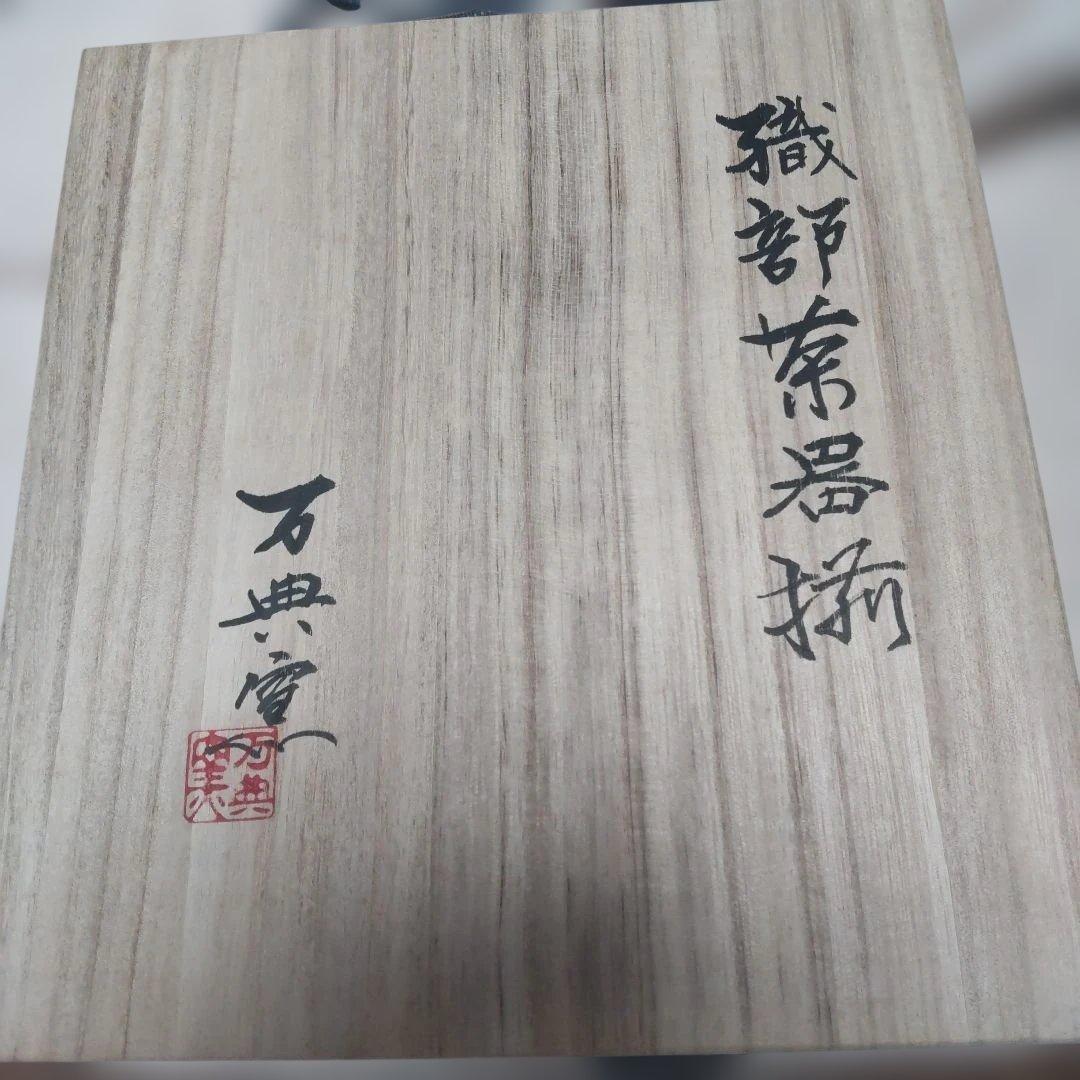 織部茶器揃
万典窯
万典